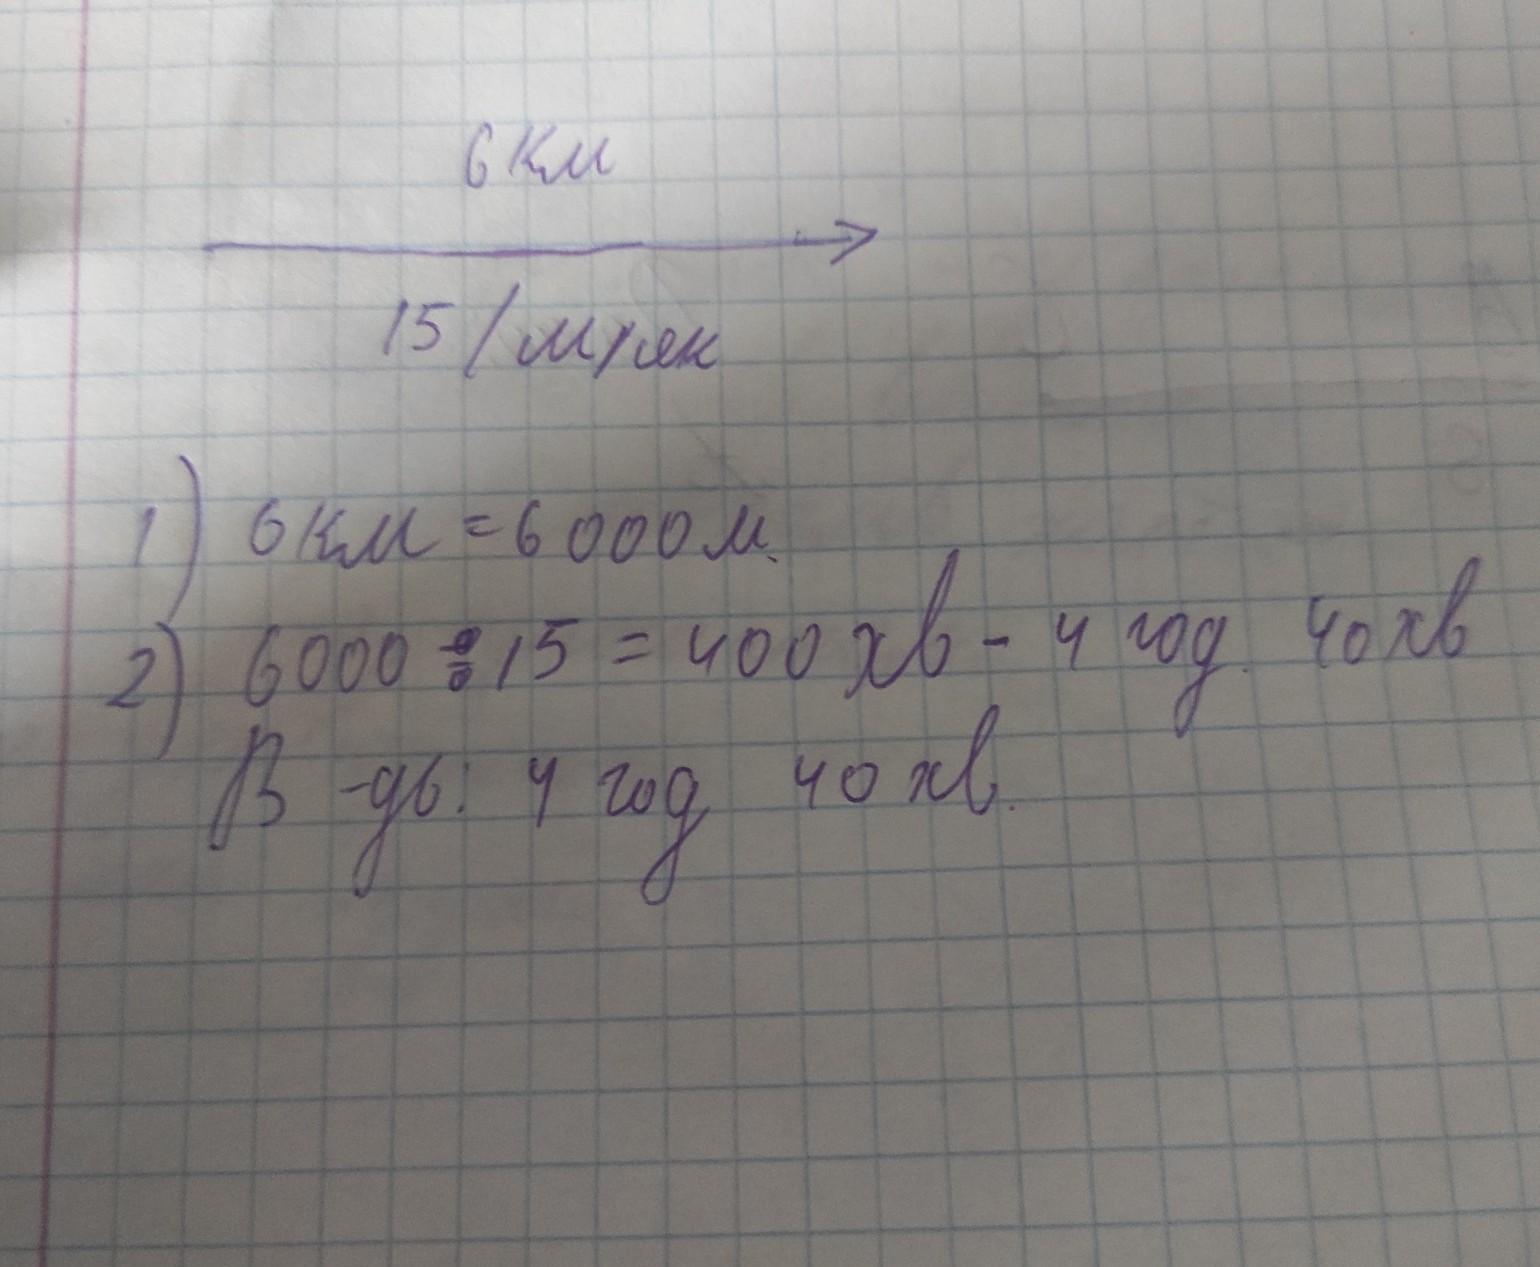 6 км
15 /
1) 6 км = 6000 м.
2) 6000 ÷ 15 = 400 хв - 4 год. 40 хв
В -дь: 4 год 40 хв.